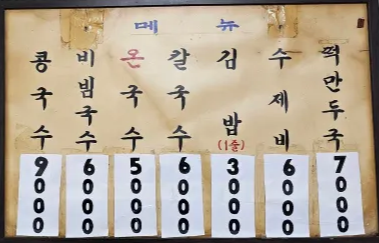 메뉴
콩국수 9000
비빔국수 6000
온국수 5000
칼국수 6000
김밥 (1줄) 3000
수제비 6000
떡만두국 7000